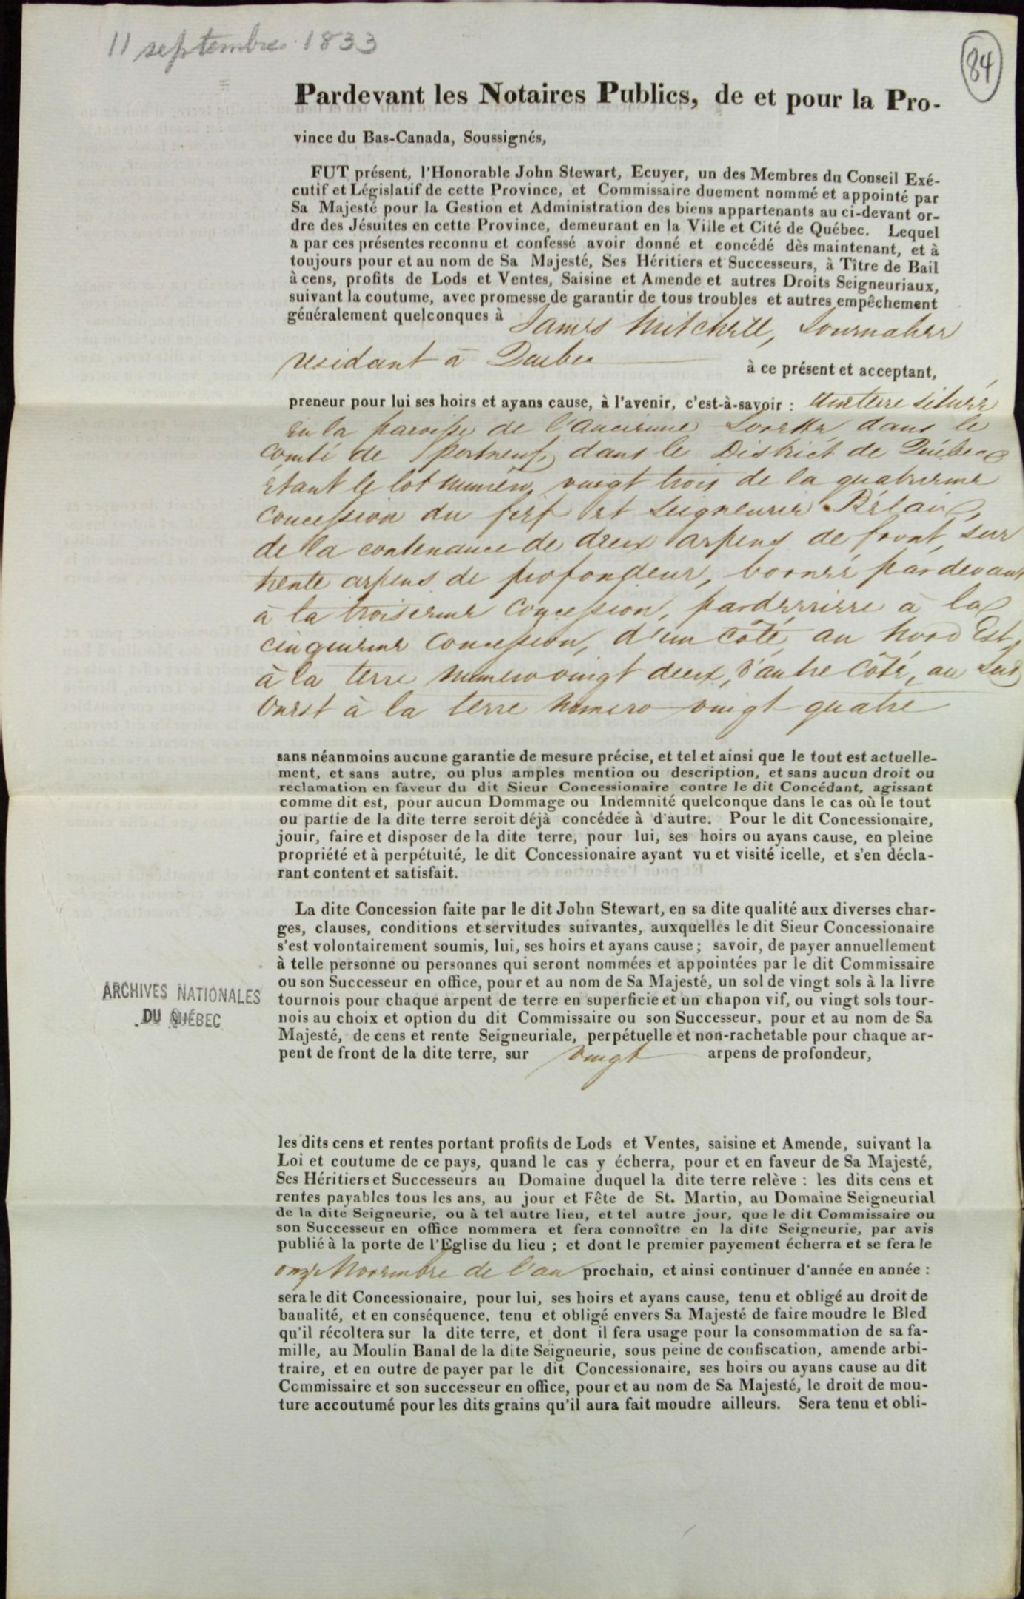 11 septembre 1833
84
Pardevant les Notaires Publics, de et pour la Pro-
vince du Bas-Canada, Soussignés,
FUT présent, l'Honorable John Stewart, Ecuyer, un des Membres du Conseil Exé-
cutif et Législatif de cette Province, et Commissaire duement nommé et appointé par
Sa Majesté pour la Gestion et Administration des biens appartenants au ci-devant or-
dre des Jésuites en cette Province, demeurant en la Ville et Cité de Québec. Lequel
a par ces présentes reconnu et confessé avoir donné et concédé dès maintenant, et à
toujours pour et au nom de Sa Majesté, Ses Héritiers et Successeurs, à Tître de Bail
à cens, profits de Lods et Ventes, Saisine et Amende et autres Droits Seigneuriaux,
suivant la coutume, avec promesse de garantir de tous troubles et autres empêchement
généralement quelconques à James Mitchell, Journalier
residant à Quebec
à ce présent et acceptant,
preneur pour lui ses hoirs et ayans cause, à l'avenir, c'est-à-savoir : une terre située
en la paroisse de l'ancienne Lorette dans le
Comté de Portneuf, dans le District de Québec
étant le lot numéro vingt trois de la quatrieme
Concession du fief et Seigneurie Bélair,
de la contenance de deux arpens de front, sur
trente arpens de profondeur, bornée par devant
à la troisieme Concession, parderriere à la
cinquieme Concession, d'un côté au Nord Est,
à la terre numero vingt deux, d'autre côté, au Sud
Ouest à la terre numero vingt quatre
sans néanmoins aucune garantie de mesure précise, et tel et ainsi que le tout est actuelle-
ment, et sans autre, ou plus amples mention ou description, et sans aucun droit ou
reclamation en faveur du dit Sieur Concessionaire contre le dit Concédant, agissant
comme dit est, pour aucun Dommage ou Indemnité quelconque dans le cas où le tout
ou partie de la dite terre seroit déjà concédée à d'autre. Pour le dit Concessionaire,
jouir, faire et disposer de la dite terre, pour lui, ses hoirs ou ayans cause, en pleine
propriété et à perpétuité, le dit Concessionaire ayant vu et visité icelle, et s'en décla-
rant content et satisfait.
La dite Concession faite par le dit John Stewart, en sa dite qualité aux diverses char-
ges, clauses, conditions et servitudes suivantes, auxquelles le dit Sieur Concessionaire
s'est volontairement soumis, lui, ses hoirs et ayans cause; savoir, de payer annuellement
à telle personne ou personnes qui seront nommées et appointées par le dit Commissaire
ou son Successeur en office, pour et au nom de Sa Majesté, un sol de vingt sols à la livre
tournois pour chaque arpent de terre en superficie et un chapon vif, ou vingt sols tour-
nois au choix et option du dit Commissaire ou son Successeur, pour et au nom de Sa
Majesté, de cens et rente Seigneuriale, perpétuelle et non-rachetable pour chaque ar-
pent de front de la dite terre, sur vingt arpens de profondeur,
ARCHIVES NATIONALES
DU QUÉBEC
les dits cens et rentes portant profits de Lods et Ventes, saisine et Amende, suivant la
Loi et coutume de ce pays, quand le cas y écherra, pour et en faveur de Sa Majesté,
Ses Héritiers et Successeurs au Domaine duquel la dite terre relève : les dits cens et
rentes payables tous les ans, au jour et Fête de St. Martin, au Domaine Seigneurial
de la dite Seigneurie, ou à tel autre lieu, et tel autre jour, que le dit Commissaire ou
son Successeur en office nommera et fera connoître en la dite Seigneurie, par avis
publié à la porte de l'Eglise du lieu ; et dont le premier payement écherra et se fera le
onze Novembre de l'an prochain, et ainsi continuer d'année en année :
sera le dit Concessionaire, pour lui, ses hoirs et ayans cause, tenu et obligé au droit de
banalité, et en conséquence, tenu et obligé envers Sa Majesté de faire moudre le Bled
qu'il récoltera sur la dite terre, et dont il fera usage pour la consommation de sa fa-
mille, au Moulin Banal de la dite Seigneurie, sous peine de confiscation, amende arbi-
traire, et en outre de payer par le dit Concessionaire, ses hoirs ou ayans cause au dit
Commissaire et son successeur en office, pour et au nom de Sa Majesté, le droit de mou-
ture accoutumé pour les dits grains qu'il aura fait moudre ailleurs. Sera tenu et obli-